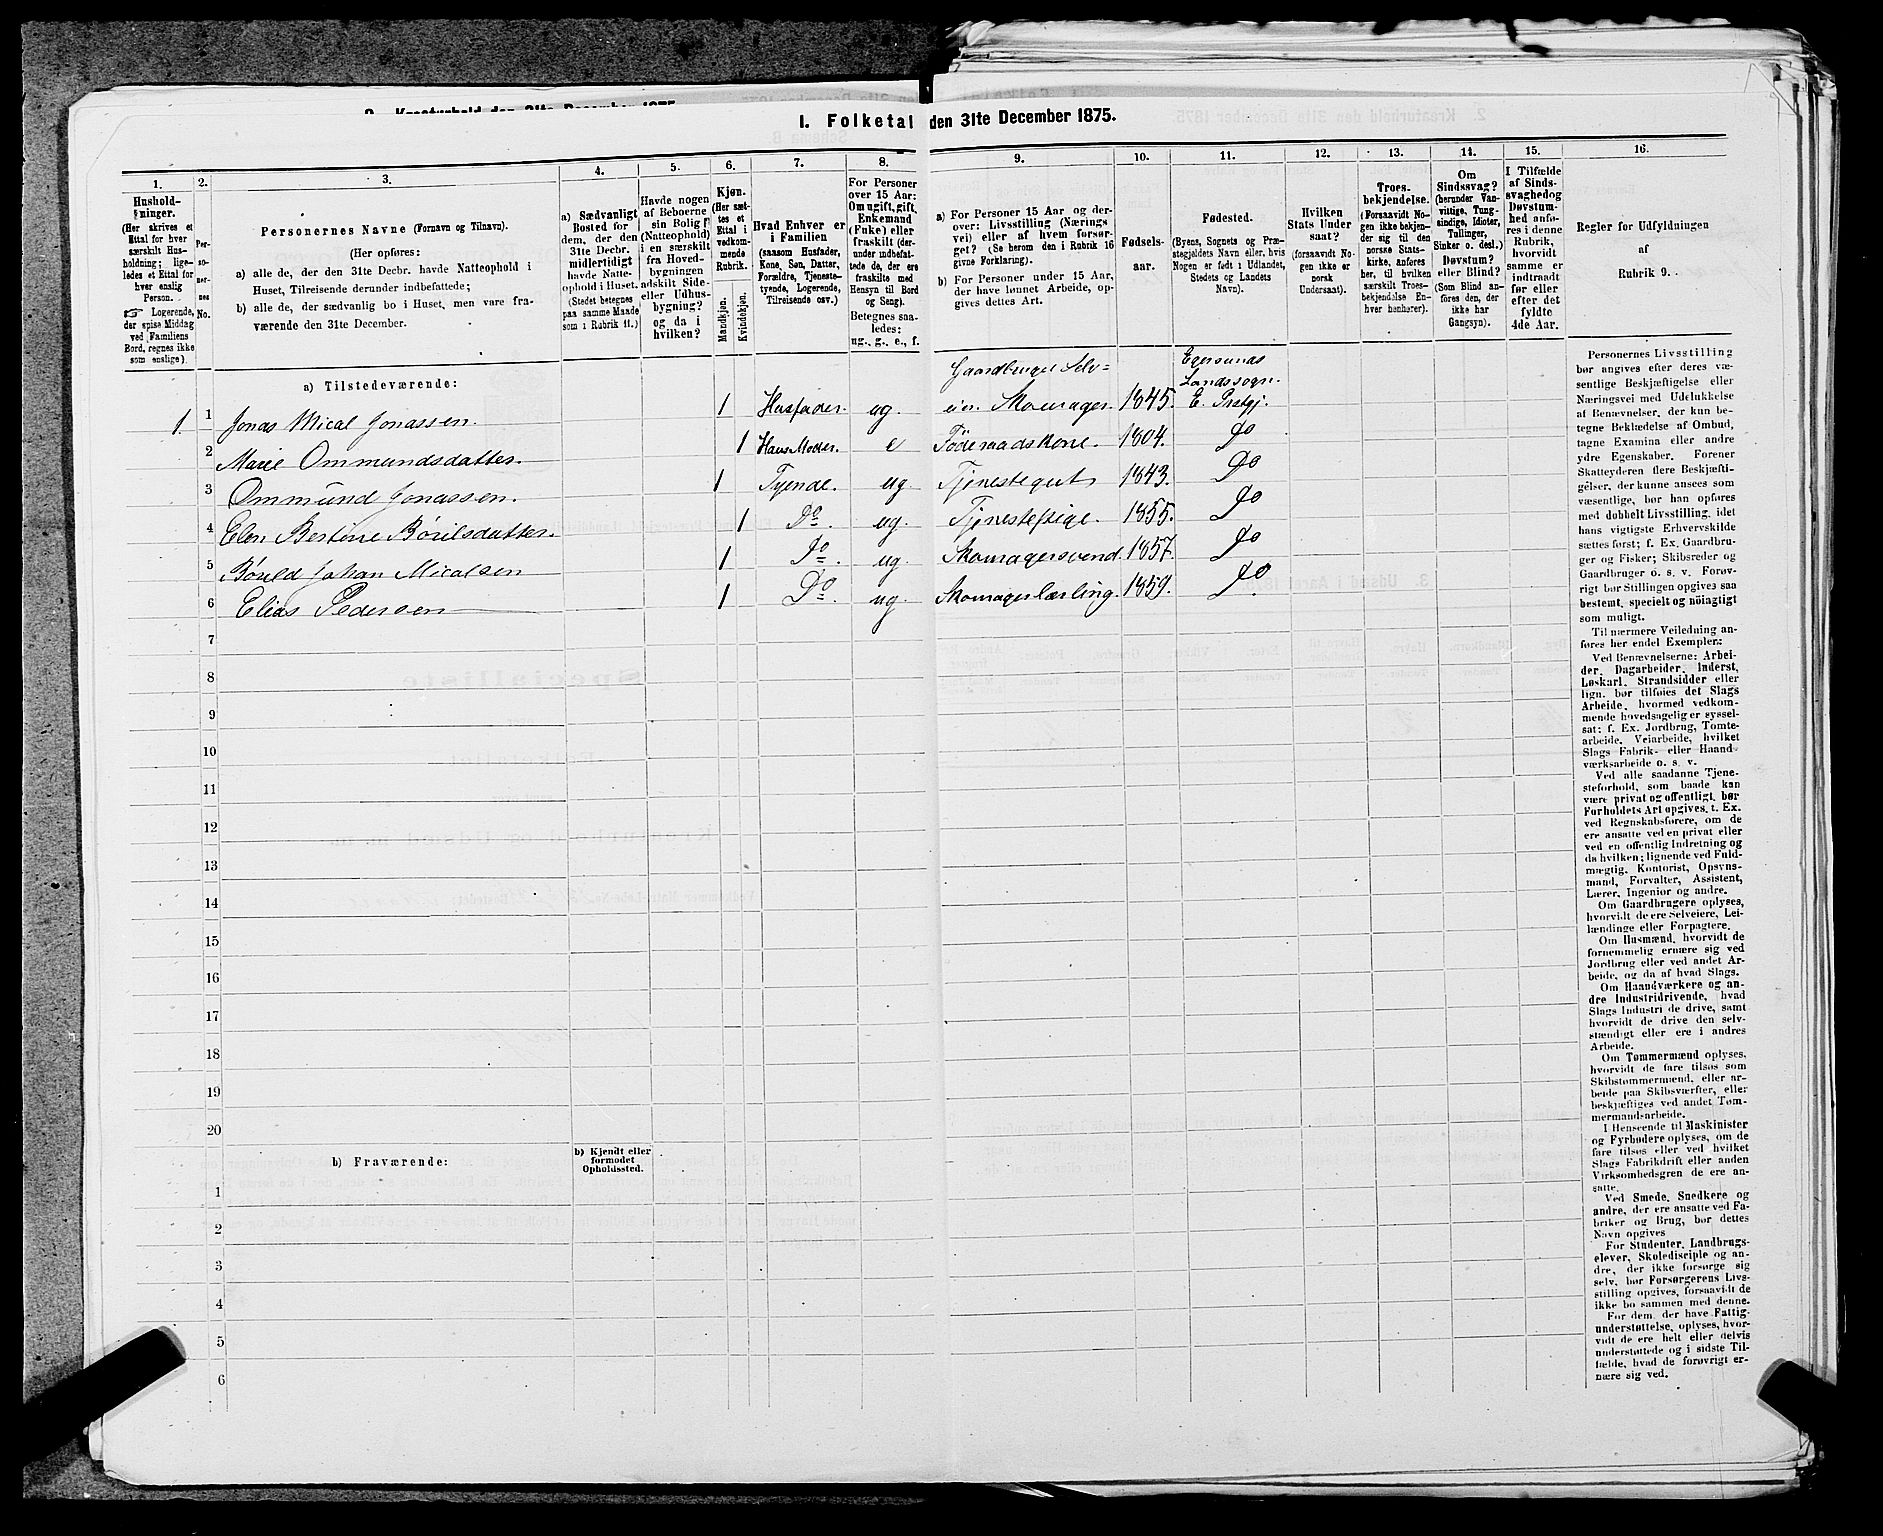 2. Kreaturhold den 31te December 1875.
I. Folketal den 31te December 1875.
1.
Hushold-
ninger.
(Her skrives et
Ettal for hver
særskilt Hus-
holdning; lige-
ledes et Ettal for
hver enslig
Person.
☞ Logerende,
der spise Middag
ved Familiens
Bord, regnes ikke
som enslige).
2.
Per-
so-
ner-
nes
No.
3.
Personernes Navne (Fornavn og Tilnavn).
(Her opføres:
a) alle de, der den 31te Decbr. havde Natteophold i
Huset, Tilreisende derunder indbefattede;
b) alle de, der sædvanlig bo i Huset, men vare fra-
værende den 31te December.
4.
a) Sædvanligt
Bosted for
dem, der den
31te Decbr.
midlertidigt
havde Natte-
ophold i Huset.
(Stedet betegnes
paa samme Maade
som i Rubrik 11.)
5.
Havde nogen
af Beboerne
sin Bolig
(Natteophold)
i en særskilt
fra Hoved-
bygningen
adskilt Side-
eller Udhus-
bygning?
og da i
hvilken?
6.
Kjøn.
(Her sæt-
tes et
Ettal i
vedkom-
mende
Rubrik.
Mandkjøn.
Kvindekjøn.
7.
Hvad Enhver er
i Familien
(saasom Husfader,
Kone, Søn, Datter,
Forældre, Tjeneste-
tyende, Logerende,
Tilreisende osv.)
8.
For Personer
over 15 Aar:
Om ugift, gift,
Enkemand
(Enke) eller
fraskilt (der-
under indbefat-
tede de, der ere
fraskilte med
Hensyn til Bord
og Seng).
Betegnes saa-
ledes:
ug., g., e., f.
9.
a) For Personer 15 Aar og der-
over: Livsstilling (Nærings
vei) eller af hvem forsør-
get? (Se herom den i Rubrik 16
givne Forklaring).
b) For Personer under 15 Aar,
der have lønnet Arbeide, op-
gives dettes Art.
10.
Fødsels-
aar.
11.
Fødested.
(Byens, Sognets og Præ-
stegjeldets Navn eller, hvis
Nogen er født i Udlandet,
Stedets og Landets
Navn).
12.
Hvilken
Stats Under
saat?
(forsaavidt No-
gen ikke er
norsk
Undersaat).
13.
Troes-
bekjendelse.
(Forsaavidt No-
gen ikke bekjen-
der sig til den
norske Stats-
kirke, anføres
her, til hvilken
særskilt Troes-
bekjendelse En-
hver henhører).
14.
Om
Sindssvag?
(herunder Van-
vittige, Tung-
sindige, Idioter,
Tullinger,
Sinker o. desl.)
Døvstum?
eller Blind?
(Som Blind an-
føres den, der
ikke har
Gangsyn).
15.
I Tilfælde
af Sinds-
svaghed og
Døvstum-
hed anfø-
res i denne
Rubrik,
hvorvidt
samme er
indtraadt
før eller
efter det
fyldte
4de Aar.
16.
Regler for Udfyldningen
af
Rubrik 9.
a) Tilstedeværende:
Gaardbruger Selv=
Egersunds
Landssogn.
1. 1 Jonas Mical Jonassen. 1 Husfader. ug. eier. Skomager. 1845. E. Prstgj.
2 Marie Ommundsdatter. 1 Hans Moder. e Föderaadskone. 1804. Do
3 Ommund Jonassen. 1 Tyende. ug. Tjenestegut 1843. Do
4 Elen Bertine Börildsdatter. 1 Do. ug. Tjenestepige. 1855. Do
5 Börild Johan Micalsen 1 Do. ug. Skomagersvend. 1857. Do
6 Elias Pedersen 1 Do. ug. Skomagerlærling. 1859. Do.
7
8
9
10
11
12
13
14
15
16
17
18
19
20
b) Fraværende:
b) Kjendt eller
formodet
Opholdssted.
1
2
3
4
5
6
Personernes Livsstilling
bør angives efter deres væ-
sentlige Beskjæftigelse eller
Næringsvei med Udelukkelse
af Benævnelser, der kun be-
tegne Beklædelse af Ombud,
tagne Examina eller andre
ydre Egenskaber. Forener
Skatteyderen flere Beskjæfti-
gelser, der kunne ansees som
væsentlige, bør han opføres
med dobbelt Livsstilling, idet
hans vigtigste Erhvervskilde
sættes først; f. Ex. Gaardbru-
ger og Fisker; Skibsreder og
Gaardbruger o. s. v. Forøv-
rigt bør Stillingen opgives saa
bestemt, specielt og nöiagtigt
som muligt.
Til nærmere Veiledning an-
føres her endel Exempler:
Ved Benævnelserne: Arbei-
der, Dagarbeider, Inderst,
Løskarl, Strandsidder eller
lign. bør tilføies det Slags
Arbeide, hvormed vedkom-
mende hovedsagelig er syssel-
sat; f. Ex. Jordbrug, Tomte-
arbeide, Veiarbeide, hvilket
Slags Fabrik- eller Haand-
værksarbeide o. s. v.
Ved alle saadanne Tjene-
steforhold, som baade kan
være privat og offentligt, bør
Forholdets Art opgives, t. Ex.
ved Regnskabsførere, om de
ere ansatte ved en privat eller
ved en offentlig Indretning og
da hvilken; lignende ved Fuld-
mægtig, Kontorist, Opsyns-
mand, Forvalter, Assistent,
Lærer, Ingeniør og andre.
Om Gaardbrugere oplyses,
hvorvidt de ere Selveiere, Lei-
lændinge eller Forpagtere.
Om Husmænd, hvorvidt de
fornemmelig ernære sig ved
Jordbrug eller ved andet Ar-
beide, og da af hvad Slags.
Om Haandværkere og an-
dre Industridrivende, hvad
Slags Industri de drive, samt
hvorvidt de drive den selv-
stændigt eller ere i andres
Arbeide.
Om Tømmermænd oplyses,
hvorvidt de fare tilsøs som
Skibstømmermænd, eller ar-
beide paa Skibsværfter, eller
beskjæftiges ved andet Tøm-
mermandsarbeide.
I Henseende til Maskinister
og Fyrbødere oplyses, om de
fare tilsøs eller ved hvilket
Slags Fabrikdrift eller anden
Virksomhedsgren de ere an-
satte.
Ved Smede, Snedkere og
andre, der ere ansatte ved Fa-
briker og Brug, bør dettes
Navn opgives
For Studenter, Landbrugs-
elever, Skoledisciple og an-
dre, der ikke forsørge sig
selv, bør Forsørgerens Livs-
stilling opgives, forsaavidt de
ikke bo sammen med denne.
For dem, der have Fattig-
understøttelse, oplyses, hvor-
vidt de ere helt eller delvis
understøttede og i sidste Til-
fælde, hvad de forøvrigt er-
nære sig ved.